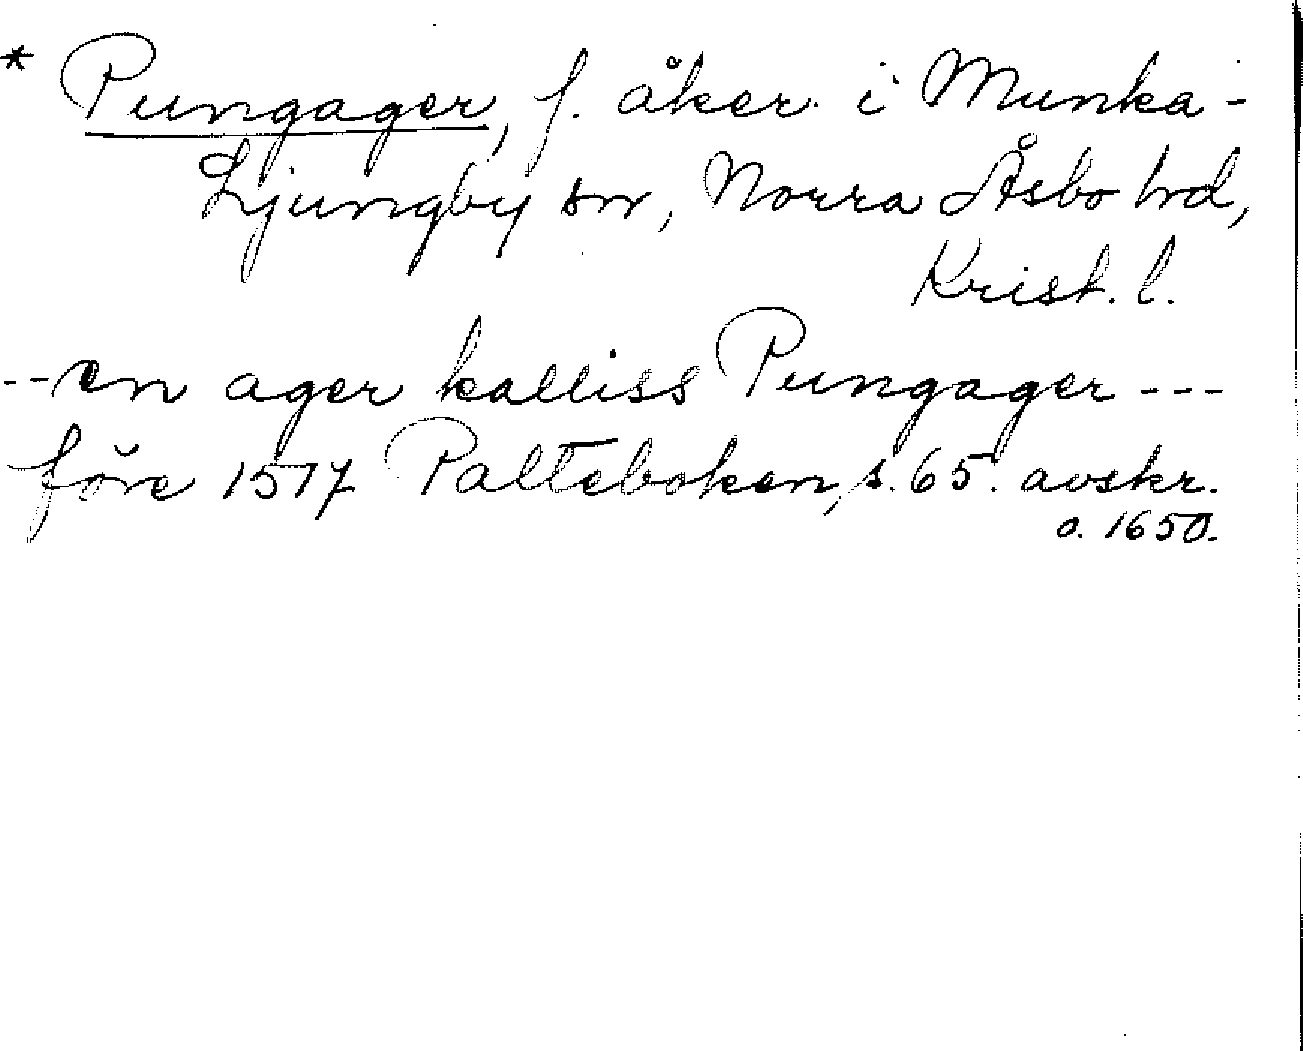 * Pungager, f. åker i Munka-
Ljungby sn, Norra Åsbo hd,
Krist. l.
--en ager kalliss Pungager---
före 1517 Palteboken, s. 65. avskr.
o. 1650.